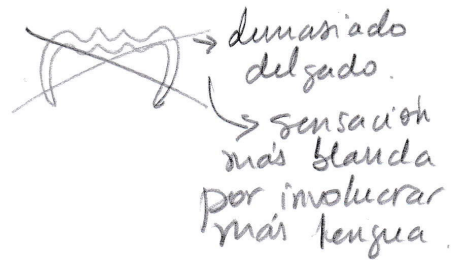 → demasiado
delgado.
→ sensación
más blanda
por involucrar
más lengua.